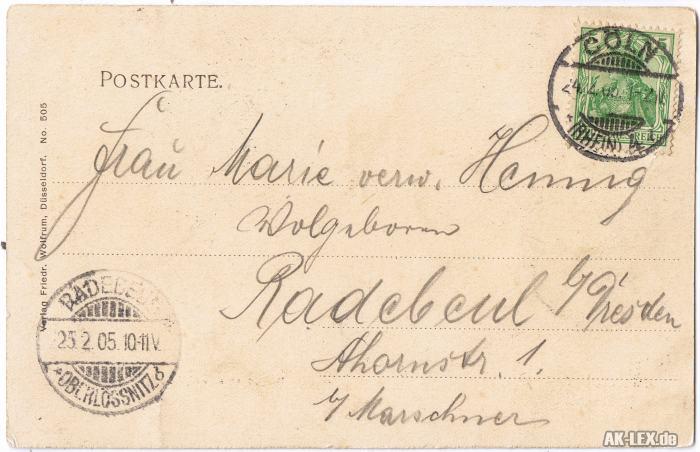 POSTKARTE.
Frau Marie verw. Hennig
Wolgeboren
Radebeul b/Dresden
Ahornstr. 1.
b/Marschner
Verlag Friedr. Wolfrum, Düsseldorf. No. 505
CÖLN
24.2.05.
(RHEIN)
RADEBEUL
25.2.05.10-11V.
OBERLÖSSNITZ
AK-LEX.de